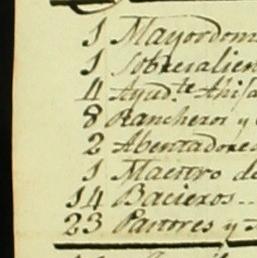 1 Mayordom
1 Sobresalien
4 Ayud.te Ahija
8 Rancheros y
2 Abentadores
1 Maestro de
14 Bacieros..
23 Pastores y